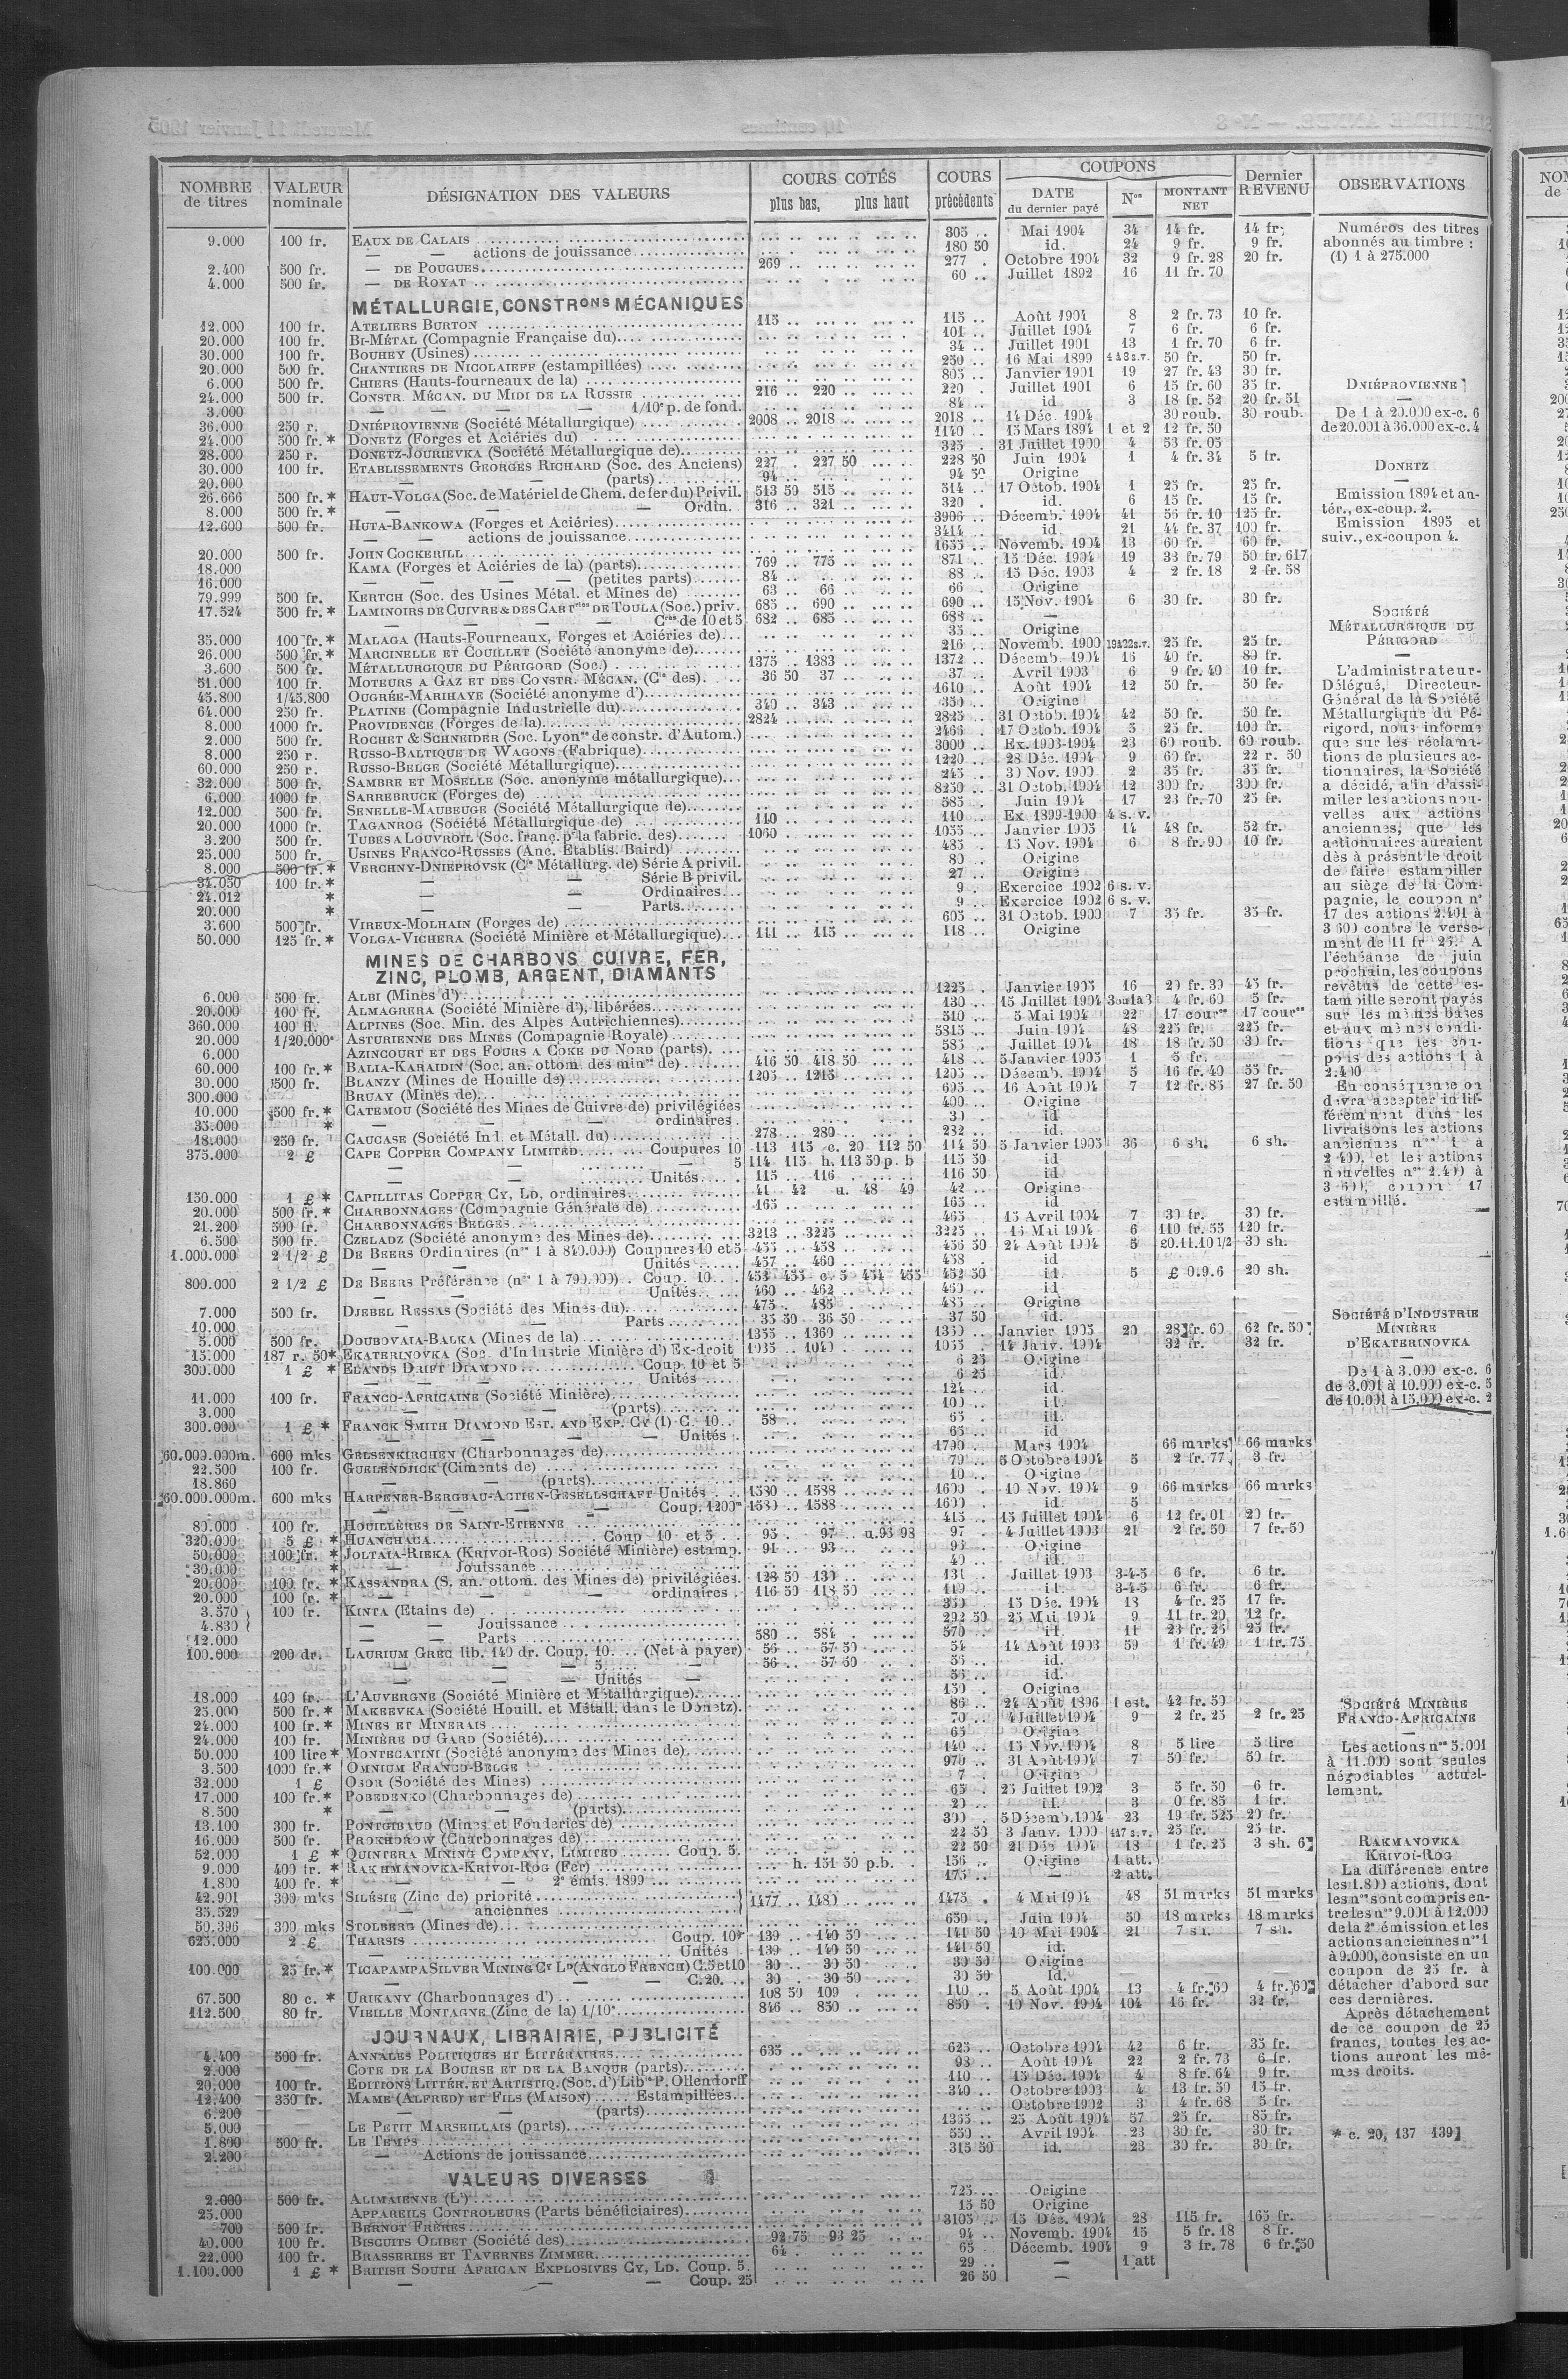 NOMBRE de titres | VALEUR nominale | DÉSIGNATION DES VALEURS | COURS COTÉS plus bas, plus haut | COURS précédents | COUPONS DATE du dernier payé | Nos | MONTANT NET | Dernier REVENU | OBSERVATIONS
9.000 100 fr. EAUX DE CALAIS 305 .. Mai 1904 34 14 fr. 14 fr.
— — actions de jouissance 180 50 id. 24 9 fr. 9 fr.
2.400 500 fr. — DE POUGUES 269 .. 277 . Octobre 1904 32 9 fr. 28 20 fr.
4.000 500 fr. — DE ROYAT 60 .. Juillet 1892 16 11 fr. 70
MÉTALLURGIE, CONSTRons MÉCANIQUES
12.000 100 fr. ATELIERS BURTON 115 .. 115 .. Août 1904 8 2 fr. 73 10 fr.
20.000 100 fr. BI-MÉTAL (Compagnie Française du) 101 .. Juillet 1904 7 6 fr. 6 fr.
30.000 100 fr. BOUHEY (Usines) 34 .. Juillet 1901 13 1 fr. 70 6 fr.
20.000 500 fr. CHANTIERS DE NICOLAIEFF (estampillées) 250 .. 16 Mai 1899 50 fr. 50 fr.
6.000 500 fr. CHIERS (Hauts-fourneaux de la) 805 .. Janvier 1901 19 27 fr. 43 30 fr.
24.000 500 fr. CONSTR. MÉCAN. DU MIDI DE LA RUSSIE 216 .. 220 .. 220 . Juillet 1901 6 15 fr. 60 35 fr.
3.000 — — — — 1/10e p. de fond. 84 .. id 3 18 fr. 52 20 fr. 51
36.000 250 r. DNIÉPROVIENNE (Société Métallurgique) 2008 .. 2018 .. 2018 .. 14 Déc. 1904 30 roub. 30 roub.
24.000 500 fr. * DONETZ (Forges et Aciéries du) 1140 .. 15 Mars 1894 1 et 2 12 fr. 50
28.000 250 r. DONETZ-JOURIEVKA (Société Métallurgique de) 325 . 31 Juillet 1900 4 53 fr. 05
30.000 100 fr. ETABLISSEMENTS GEORGES RICHARD (Soc. des Anciens) 227 . 227 50 228 50 Juin 1904 1 4 fr. 34 5 fr.
20.000 — — (parts) 94 .. 94 50 Origine
26.666 500 fr. * HAUT-VOLGA (Soc. de Matériel de Chem. de fer du) Privil. 513 50 515 .. 514 .. 17 Octob. 1904 1 25 fr. 25 fr.
8.000 500 fr. * — — — Ordin. 316 .. 321 .. 320 . id. 6 15 fr. 15 fr.
12.600 500 fr. HUTA-BANKOWA (Forges et Aciéries) 3906 .. Décemb. 1904 41 56 fr. 10 125 fr.
— — actions de jouissance 3414 .. id 21 44 fr. 37 100 fr.
20.000 500 fr. JOHN COCKERILL 1655 .. Novemb. 1904 13 60 fr. 60 fr.
18.000 KAMA (Forges et Aciéries de la) (parts) 769 .. 775 .. 871 .. 15 Déc. 1904 19 33 fr. 79 50 fr. 617
16.000 — — — — (petites parts) 84 .. 88 .. 15 Déc. 1903 4 2 fr. 18 2 fr. 58
79.999 500 fr. KERTCH (Soc. des Usines Métal. et Mines de) 63 .. 66 .. 66 . Origine
17.524 500 fr. * LAMINOIRS DE CUIVRE & DES CARTries DE TOULA (Soc.) priv. 685 .. 690 .. 690 .. 15 Nov. 1904 6 30 fr. 30 fr.
— — — — Cres de 10 et 5 682 .. 685 .. 688 .. —
35.000 100 fr. * MALAGA (Hauts-Fourneaux, Forges et Aciéries de) 35 .. Origine
26.000 500 fr. * MARCINELLE ET COUILLET (Société anonyme de) 216 . Novemb. 1900 25 fr. 25 fr.
3.600 500 fr. MÉTALLURGIQUE DU PÉRIGORD (Soc.) 1375 .. 1383 .. 1372 .. Décemb. 1904 16 40 fr. 80 fr.
51.000 100 fr. MOTEURS A GAZ ET DES CONSTR. MÉCAN. (Cie des) 36 50 37 .. 37 .. Avril 1903 6 9 fr. 40 10 fr.
45.800 1/45.800 OUGRÉE-MARIHAYE (Société anonyme d') 1610 .. Août 1904 12 50 fr. 50 fr.
64.000 250 fr. PLATINE (Compagnie Industrielle du) 340 .. 343 .. 350 .. Origine
8.000 1000 fr. PROVIDENCE (Forges de la) 2824 .. 2825 .. 31 Octob. 1904 42 50 fr. 50 fr.
2.000 500 fr. ROCHET & SCHNEIDER (Soc. Lyonse de constr. d'Autom.) 2466 . 17 Octob. 1904 5 25 fr. 100 fr.
8.000 250 r. RUSSO-BALTIQUE DE WAGONS (Fabrique) 3000 .. Ex. 1903-1904 23 60 roub. 60 roub.
60.000 250 r. RUSSO-BELGE (Société Métallurgique) 1220 .. 28 Déc. 1904 9 60 fr. 22 r. 50
32.000 500 fr. SAMBRE ET MOSELLE (Soc. anonyme métallurgique) 245 .. 30 Nov. 1900 2 35 fr. 35 fr.
6.000 1000 fr. SARREBRUCK (Forges de) 8250 .. 31 Octob. 1904 12 300 fr. 300 fr.
12.000 500 fr. SENELLE-MAUBEUGE (Société Métallurgique de) 585 .. Juin 1904 17 23 fr. 70 25 fr.
20.000 1000 fr. TAGANROG (Société Métallurgique de) 110 .. 110 .. Ex 1899-1900 4 s. v.
3.200 500 fr. TUBES A LOUVROIL (Soc. franç. pr la fabric. des) 1060 .. 1055 .. Janvier 1905 14 48 fr. 52 fr.
25.000 500 fr. USINES FRANCO-RUSSES (Anc. Etablis. Baird) 485 .. 15 Nov. 1904 6 8 fr. 90 10 fr.
8.000 500 fr. * VERCHNY-DNIEPROVSK (Cie Métallurg. de) Série A privil. 80 .. Origine
34.050 100 fr. * — — Série B privil. 27 .. Origine
24.012 * — — Ordinaires 9 . Exercice 1902 6 s. v.
20.000 * — — Parts 9 . Exercice 1902 6 s. v.
3.600 500 fr. VIREUX-MOLHAIN (Forges de) 605 .. 31 Octob. 1900 7 35 fr. 35 fr.
50.000 125 fr. * VOLGA-VICHERA (Société Minière et Métallurgique) 111 .. 115 .. 118 .. Origine
MINES DE CHARBONS CUIVRE, FER,
ZINC, PLOMB, ARGENT, DIAMANTS
6.000 500 fr. ALBI (Mines d') 1225 .. Janvier 1905 16 20 fr. 30 45 fr.
20.000 100 fr. ALMAGRERA (Société Minière d'), libérées 130 .. 15 Juillet 1904 4 fr. 60 5 fr.
360.000 100 fl. ALPINES (Soc. Min. des Alpes Autrichiennes) 510 .. 5 Mai 1904 22 17 cour 17 cour
20.000 1/20.000e ASTURIENNE DES MINES (Compagnie Royale) 5815 .. Juin 1904 48 225 fr. 225 fr.
6.000 AZINCOURT ET DES FOURS A COKE DU NORD (parts) 585 .. Juillet 1904 18 18 fr. 50 30 fr.
60.000 100 fr. * BALIA-KARAIDIN (Soc. an. ottom. des mines de) 416 50 418 50 418 .. 5 Janvier 1905 1 5 fr.
30.000 500 fr. BLANZY (Mines de Houille de) 1205 .. 1215 .. 1205 .. Décemb. 1904 5 16 fr. 40 55 fr.
300.000 BRUAY (Mines de) 695 .. 16 Août 1904 7 12 fr. 85 27 fr. 50
10.000 500 fr. * CATEMOU (Société des Mines de Cuivre de) privilégiées 400 .. Origine
35.000 * — — — ordinaires 30 .. id.
18.000 250 fr. CAUCASE (Société Ind. et Métall. du) 278 .. 280 .. 282 .. id.
375.000 2 £ CAPE COPPER COMPANY LIMITED Coupures 10 113 115 c. 20 112 50 114 50 5 Janvier 1905 36 6 sh. 6 sh.
— — 5 114 115 h. 113 50 p. b 115 50 id
— — Unités 115 .. 116 .. 116 50 id
150.000 1 £ * CAPILLITAS COPPER CY, LD, ordinaires 41 42 u. 48 49 42 .. Origine
20.000 500 fr. * CHARBONNAGES (Compagnie Générale de) 165 .. 165 .. id
21.200 500 fr. CHARBONNAGES BELGES 465 .. 15 Avril 1904 7 30 fr. 30 fr.
6.500 500 fr. CZELADZ (Société anonyme des Mines de) 3213 .. 3225 .. 3225 .. 15 Mai 1904 6 110 fr. 55 120 fr.
1.000.000 2 1/2 £ DE BEERS Ordinaires (nos 1 à 840.000) Coupures 10 et 5 455 .. 458 .. 456 50 24 Août 1904 5 £0.11.10 1/2 30 sh.
Unités 457 .. 460 .. 458 . id
800.000 2 1/2 £ DE BEERS Préférence (nos 1 à 790.000) Coup. 10 453 455 c. 5 454 455 452 50 id. 5 £ 0.9.6 20 sh.
Unités 460 .. 462 .. 460 .. id
7.000 500 fr. DJEBEL RESSAS (Société des Mines du) 475 . 485 .. 485 .. Origine
10.000 — — Parts 35 50 36 50 37 50 id.
5.000 500 fr. DOUBOVAIA-BALKA (Mines de la) 1355 .. 1360 .. 1350 .. Janvier 1905 20 28 fr. 60 62 fr. 50
15.000 187 r. 50* EKATERINOVKA (Soc. d'Industrie Minière d') Ex-droit 1035 .. 1040 .. 1055 .. 14 Janv. 1904 32 fr. 32 fr.
300.000 1 £ * ELANDS DRIFT DIAMOND Coup. 10 et 5 6 25 Origine
— — — Unités 6 25 id.
11.000 100 fr. FRANCO-AFRICAINE (Société Minière) 124 .. id.
3.000 — — (parts) 100 .. id.
300.000 1 £ * FRANCK SMITH DIAMOND EST. AND EXP. CY (1) C. 10 58 .. 65 . id.
— — — Unités 65 .. id
60.000.000m. 600 mks GELSENKIRCHEN (Charbonnages de) 1790 .. Mars 1904 66 marks 66 marks
22.500 100 fr. GUELENDJICK (Ciments de) 70 .. 5 Octobre 1904 5 2 fr. 77 3 fr.
18.860 — — (parts) 10 .. Origine
60.000.000m. 600 mks HARPENER-BERGBAU-ACTIEN-GESELLSCHAFT Unités 1580 .. 1588 .. 1600 .. 10 Nov. 1904 9 66 marks 66 marks
— — — Coup. 1200m 1580 .. 1588 .. 1600 .. id. 5
80.000 100 fr. HOUILLÈRES DE SAINT-ETIENNE 415 .. 15 Juillet 1904 6 12 fr. 01 20 fr.
320.000 5 £ * HUANCHACA Coup 10 et 5 95 . 97 u. 95 98 97 . 4 Juillet 1903 21 2 fr. 50 7 fr. 50
50.000 100 fr. * JOLTAIA-RIEKA (KRIVOI-ROG) Société Minière) estamp. 91 .. 93 .. 95 .. Origine
30.000 * — Jouissance 40 .. id.
20.000 100 fr. * KASSANDRA (S. an. ottom. des Mines de) privilégiées. 128 50 130 .. 131 . Juillet 1903 3-4-5 6 fr. 6 fr.
20.000 100 fr. * — — — ordinaires 116 50 118 50 119 .. id. 3-4-5 6 fr. 6 fr.
3.370 100 fr. KINTA (Etains de) 350 .. 15 Déc. 1904 18 4 fr. 25 17 fr.
4.830 — — Jouissance 292 50 25 Mai 1904 9 11 fr. 20 12 fr.
12.000 — — Parts 580 .. 584 . 570 .. id. 11 23 fr. 25 25 fr.
100.000 200 dr. LAURIUM GREC lib. 140 dr. Coup. 10 (Net à payer) 56 .. 57 50 54 14 Août 1903 59 1 fr. 49 1 fr. 75
— — — 5 — 56 .. 57 50 55 .. id.
— — — Unités — 56 .. id.
18.000 100 fr. L'AUVERGNE (Société Minière et Métallurgique) 150 .. Origine
25.000 500 fr. * MAKEEVKA (Société Houill. et Métall. dans le Donetz) 86 .. 24 Août 1896 1 est. 42 fr. 50
24.000 100 fr. * MINES ET MINERAIS 70 .. 4 Juillet 1904 9 2 fr. 25 2 fr. 25
24.000 100 fr. MINIÈRE DU GARD (Société) 65 .. Origine
50.000 100 lire * MONTECATINI (Société anonyme des Mines de) 140 .. 15 Nov. 1904 8 5 lire 5 lire
3.500 1000 fr. * OMNIUM FRANCO-BELGE 970 .. 31 Août 1904 7 50 fr. 50 fr.
32.000 1 £ OSOR (Société des Mines) 7 . Origine
17.000 100 fr. * POBEDENKO (Charbonnages de) 65 . 25 Juillet 1902 3 5 fr. 50 6 fr.
8.500 * — — (parts) 20 .. id. 3 0 fr. 85 1 fr.
13.100 300 fr. PONTGIBAUD (Mines et Fonderies de) 390 .. 5 Décemb. 1904 23 19 fr. 525 20 fr.
16.000 500 fr. PROKHOROW (Charbonnages de) 22 50 3 Janv. 1900 25 fr. 25 fr.
52.000 1 £ * QUINTERA MINING COMPANY, LIMITED Coup. 5 22 50 21 Déc 1904 18 1 fr. 25 3 sh. 6
9.000 400 fr. * RAKHMANOVKA-KRIVOI-ROG (Fer) h. 151 50 p.b. 156 .. Origine 1 att.
1.800 400 fr. * — — 2e émis. 1899 175 .. — 2 att.
42.901 300 mks SILÉSIE (Zinc de) priorité 1477 .. 1480 .. 1475 . 4 Mai 1904 48 51 marks 51 marks
35.529 — anciennes
50.396 300 mks STOLBERG (Mines de) 650 .. Juin 1904 50 18 marks 18 marks
625.000 2 £ THARSIS Coup. 10 139 .. 140 50 141 50 10 Mai 1904 21 7 sh. 7 sh.
— Unités 139 .. 140 50 141 50 id.
100.000 25 fr. * TICAPAMPA SILVER MINING CY LD (ANGLO FRENCH) C. 5 et 10 30 .. 30 50 30 50 Origine
— — — C. 20 30 . 30 50 30 50 id.
67.500 80 c. * URIKANY (Charbonnages d') 108 50 109 . 110 .. 5 Août 1904 13 4 fr. 60 4 fr. 60
112.500 80 fr. VIEILLE MONTAGNE (Zinc de la) 1/10e 846 .. 850 .. 850 . 10 Nov. 1904 104 16 fr. 32 fr.
JOURNAUX, LIBRAIRIE, PUBLICITÉ
4.400 500 fr. ANNALES POLITIQUES ET LITTÉRAIRES 635 .. 625 .. Octobre 1904 42 6 fr. 35 fr.
2.000 COTE DE LA BOURSE ET DE LA BANQUE (parts) 98 .. Août 1904 22 2 fr. 73 6 fr.
20.000 100 fr. EDITIONS LITTÉR. ET ARTISTIQ. (Soc. d') Librie P. Ollendorff 110 .. 15 Déc. 1904 4 8 fr. 64 9 fr.
12.400 350 fr. MAME (ALFRED) ET FILS (MAISON) Estampillées 340 .. Octobre 1903 4 13 fr. 50 15 fr.
6.200 — — (parts) Octobre 1902 3 4 fr. 68 5 fr.
5.000 LE PETIT MARSEILLAIS (parts) 1365 .. 25 Août 1904 57 25 fr. 85 fr.
1.800 500 fr. LE TEMPS 550 .. Avril 1904 23 30 fr. 30 fr.
2.200 — Actions de jouissance 315 50 id. 23 30 fr. 30 fr.
VALEURS DIVERSES
2.000 500 fr. ALIMAIENNE (L') 725 .. Origine
25.000 APPAREILS CONTROLEURS (Parts bénéficiaires) 15 50 Origine
700 500 fr. BERNOT FRÈRES 3105 .. 15 Déc. 1904 28 115 fr. 165 fr.
40.000 100 fr. BISCUITS OLIBET (Société des) 92 75 93 25 94 .. Novemb. 1904 15 5 fr. 18 8 fr.
22.000 100 fr. BRASSERIES ET TAVERNES ZIMMER 64 . 65 . Décemb. 1904 9 3 fr. 78 6 fr. 50
1.100.000 1 £ * BRITISH SOUTH AFRICAN EXPLOSIVES CY, LD. Coup. 5 29 .. — 1 att
— — — Coup. 25 26 50 —
Numéros des titres
abonnés au timbre :
(1) 1 à 275.000
DNIÉPROVIENNE
De 1 à 20.000 ex-c. 6
de 20.001 à 36.000 ex-c. 4
DONETZ
Emission 1894 et an-
tér., ex-coup. 2.
Emission 1895 et
suiv., ex-coupon 4.
SOCIÉTÉ
MÉTALLURGIQUE DU
PÉRIGORD
L'administrateur-
Délégué, Directeur-
Général de la Société
Métallurgique du Pé-
rigord, nous informe
que sur les réclama-
tions de plusieurs ac-
tionnaires, la Société
a décidé, afin d'assi-
miler les actions nou-
velles aux actions
anciennes, que les
actionnaires auraient
dès à présent le droit
de faire estampiller
au siège de la Com-
pagnie, le coupon no
17 des actions 2.401 à
3 600 contre le verse-
ment de 11 fr 25. A
l'échéance de juin
prochain, les coupons
revêtus de cette es-
tampille seront payés
sur les mêmes bases
et aux mêmes condi-
tions que les cou-
pons des actions 1 à
2.400
En conséquence on
devra accepter indif-
féremment dans les
livraisons les actions
anciennes nos 1 à
2 400, et les actions
nouvelles nos 2.400 à
3 600, coupon 17
estampillé.
SOCIÉTÉ D'INDUSTRIE
MINIÈRE
D'EKATERINOVKA
De 1 à 3.000 ex-c. 6
de 3.001 à 10.000 ex-c. 5
de 10.001 à 15.000 ex-c. 2
SOCIÉTÉ MINIÈRE
FRANCO-AFRICAINE
Les actions nos 5.001
à 11.000 sont seules
négociables actuel-
lement.
RAKMANOVKA
KRIVOI-ROG
La différence entre
les 1.800 actions, dont
les nos sont compris en-
tre les nos 9.001 à 12.000
de la 2e émission et les
actions anciennes nos 1
à 9.000, consiste en un
coupon de 25 fr. à
détacher d'abord sur
ces dernières.
Après détachement
de ce coupon de 25
francs, toutes les ac-
tions auront les mê-
mes droits.
* c. 20, 137 139